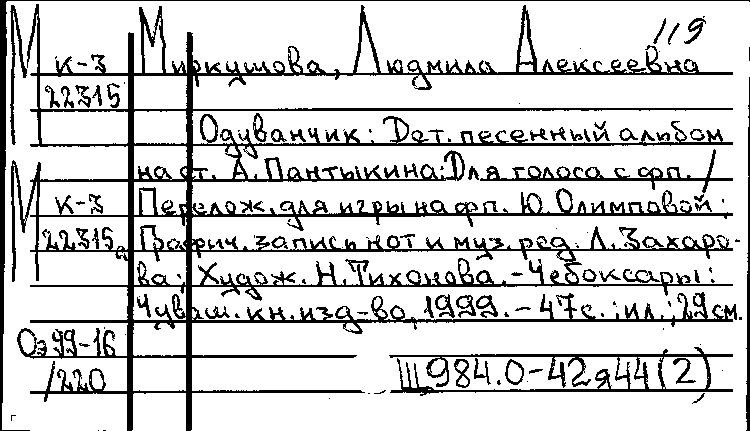 119
М
к-3
22315
Миркушова, Людмила Алексеевна
Одуванчик: Дет. песенный альбом
на ст. А. Пантыкина: Для голоса с фп. /
М
к-3
22315а
Перелож. для игры на фп. Ю. Олимповой;
Графич. запись нот и муз. ред. Л. Захаро-
ва; Худож. Н. Тихонова. - Чебоксары:
Чуваш. кн. изд-во, 1999. - 47 с.: ил.; 29 см.
Оэ 99-16
/220
Щ984.0-42я44(2)